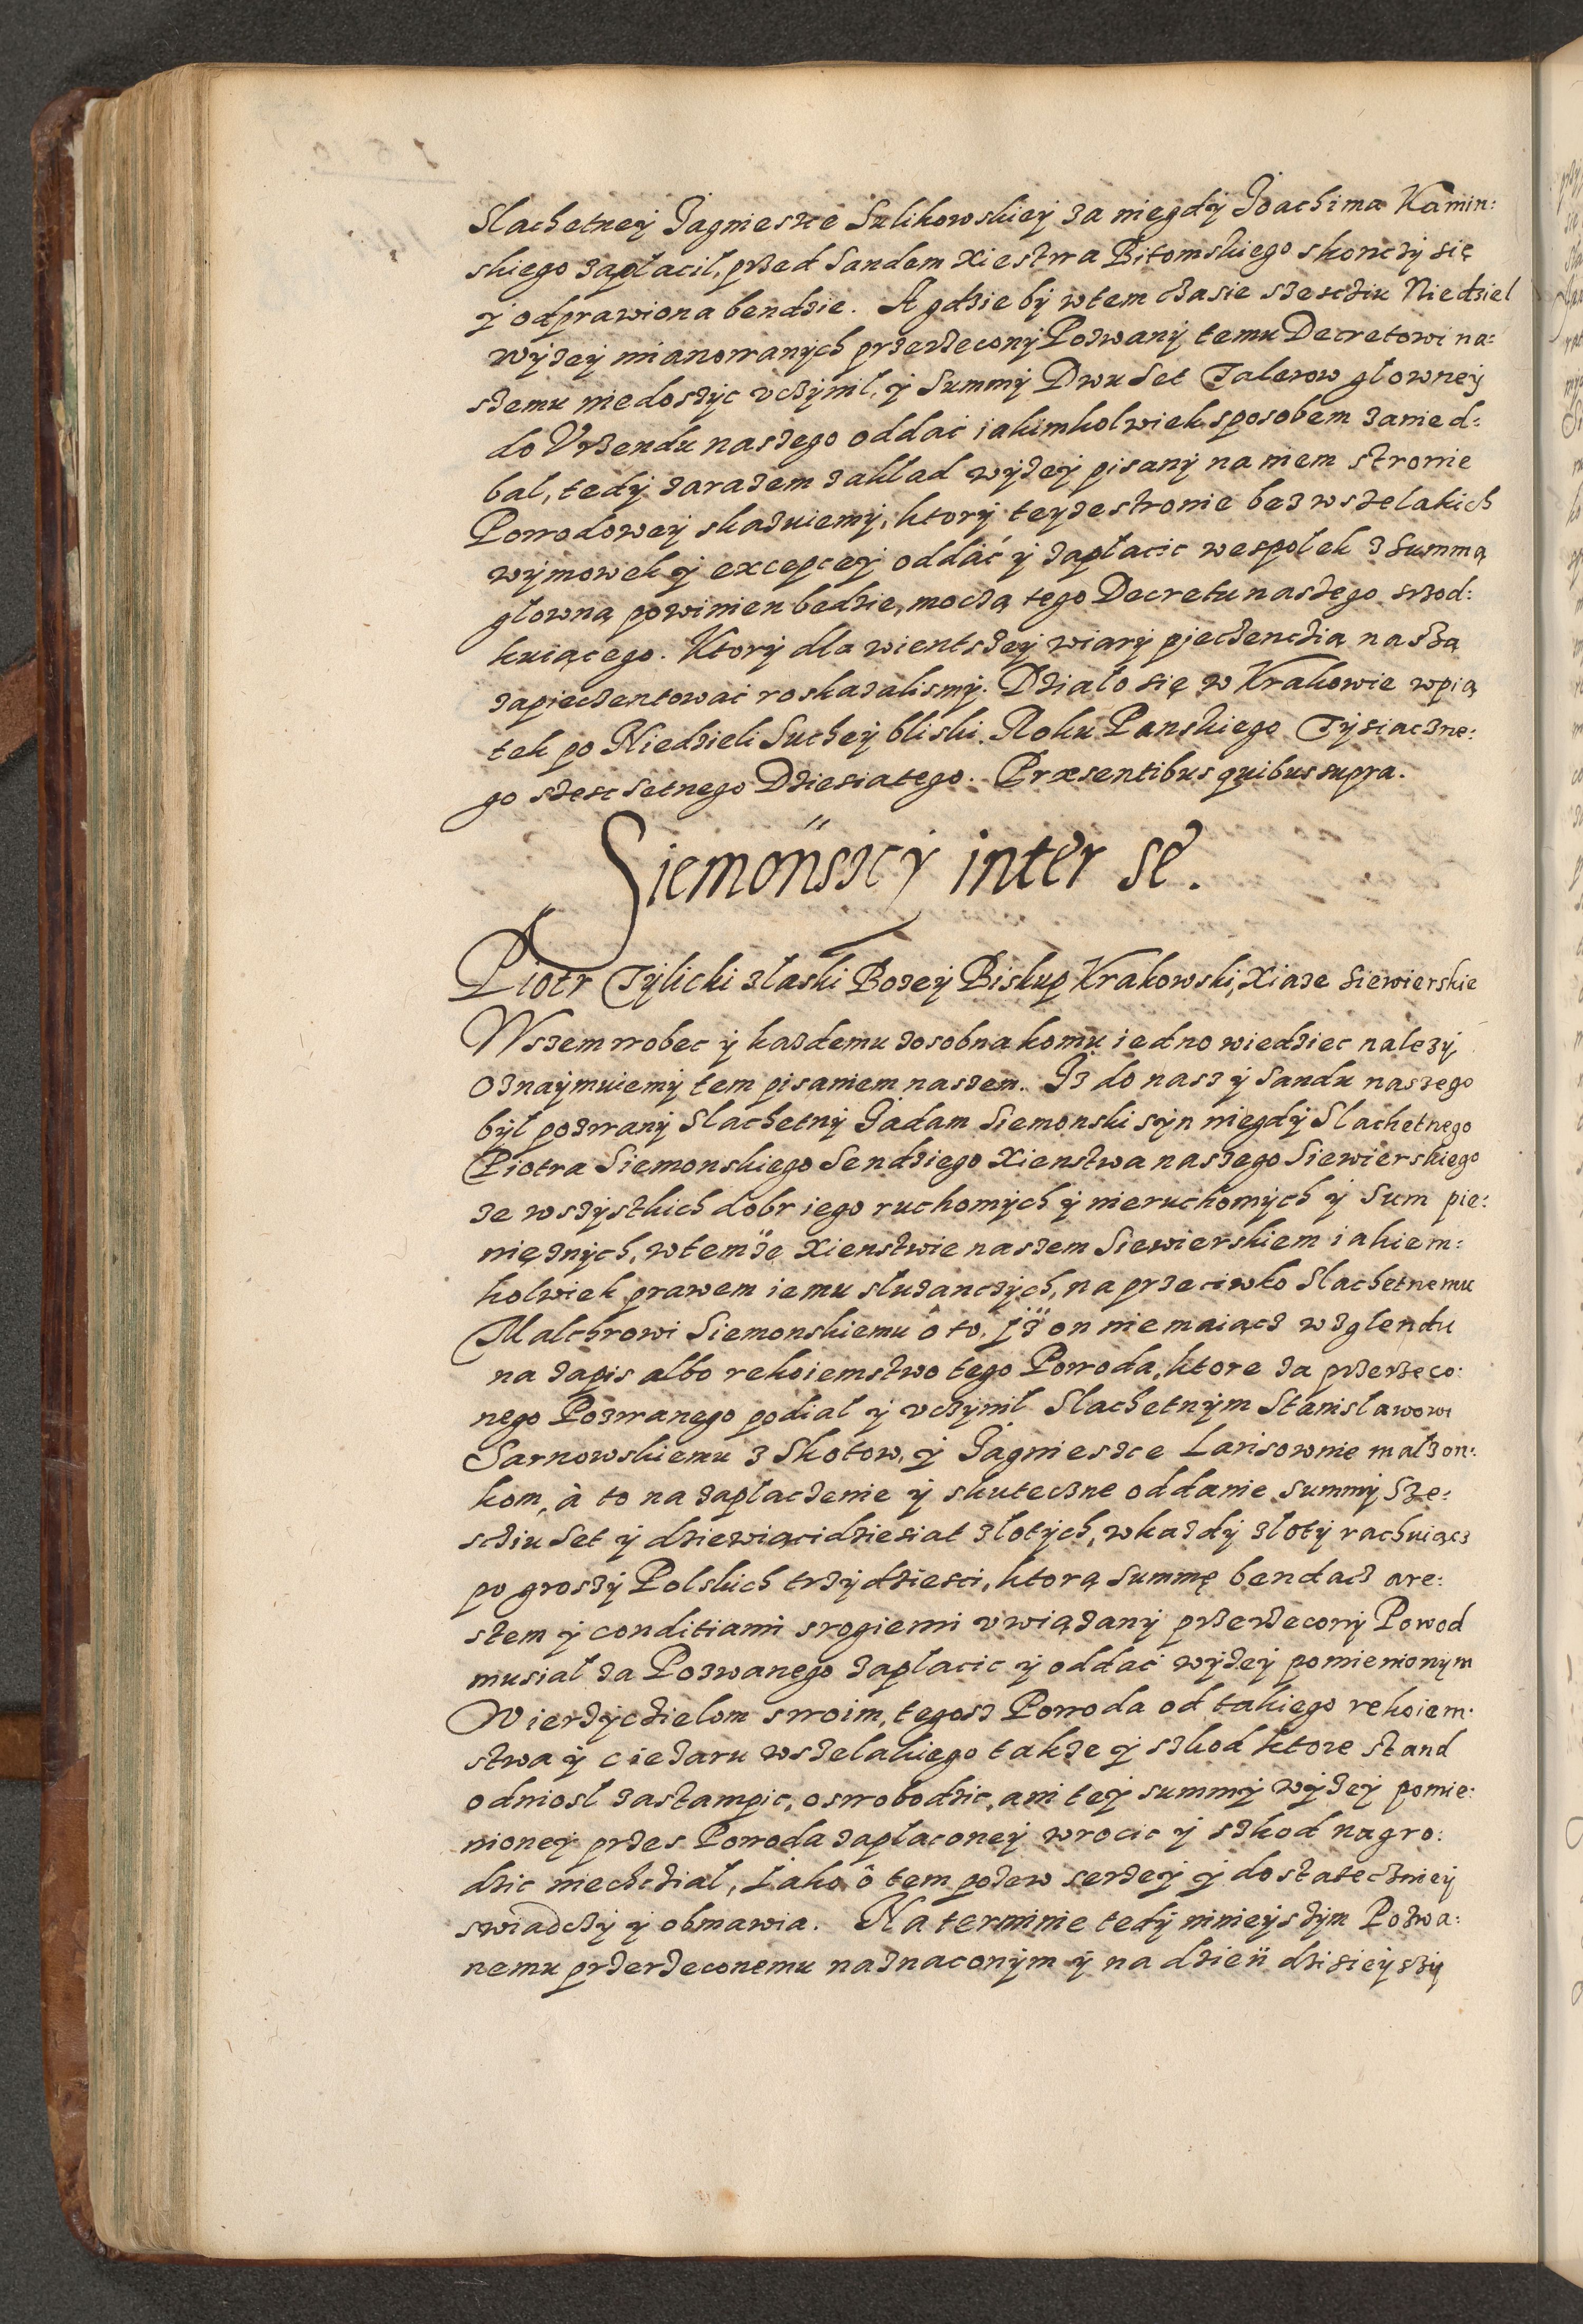 Slachetney Jagniesce Sulikowskiey za niegdy Joachima Kamin:
skiego zapłacił, przed Sandem Xiestwa Bitomskiego skonczy się
y odprawiona bendzie. A gdzie by wtem czasie szesciu Niedziel
wyzey mianowanych przerzecony Pozwany temu Decretowi na:
szemu niedoszyc vczynil, y Summy Dwu Set Talerow głowney
do Vrzendu naszego oddać iakimkolwiek sposobem zanied:
bal, tedy zarazem zakład wyzey pisany na niem stronie
Powodowey skazuiemy, ktory teyze stronie bez wszelakich
wymowek y excepcey oddać y zapłacic wespołek z Summą
głowną powinien bedzie, moczą tego Decretu naszego srzod:
kuiącego. Ktory dla wientszey wiary pieczenczią naszą
zapieczentować roskazalismy. Działo się w Krakowie wpią
tek po Niedzieli Suchey bliski. Roku Panskiego Tysiaczne:
go szesc Setnego Dziesiatego. Præsentibus quibus supra.
Siemońsscy inter se.
Piotr Tylicki złaski Bozey Biskup Krakowski, Xiaze Siewierskie
Wszem wobec y kazdemu zosobna komu iedno wiedziec nalezy
Oznaymuiemy tem pisaniem naszem. Iz do nasz y Sandu naszego
był pozwany Slachetny Jadam Siemonski syn niegdy Slachetnego
Piotra Siemonskiego Sendziego Xienstwa naszego Siewierskiego
ze wszystkich dobr iego ruchomych y nieruchomych y Sum pie:
nięznych, wtemze Xienstwie naszem Siewierskiem iakiem:
kolwiek prawem iemu słuzanczych, na przeciwko Slachetnemu
Malchrowi Siemonskiemu ô to, jz on niemaiącz wzglendu
na zapis albo rekoiemstwo tego Powoda, ktore za przerzeco:
nego Pozwanego podial y vczynil Slachetnym Stanisławowi
Sarnowskiemu z Skotow, y Jagniesce Larisownie małzon:
kom, à to na zapłaczenie y skuteczne oddanie summy Sze:
scziu Set y dziewiącidziesiat złotych, wkazdy złoty rachuiącz
po groszy Polskich trzydziesci, ktorą Summę bendacz are:
stem y conditiami srogiemi vwiązany przerzecony Powod
musiał za Pozwanego zapłacic y oddać wyzey pomienionym
Wierzyczielom swoim, tegosz Powoda od takiego rekoiem:
stwa y ciezaru wszelakiego takze y szkod ktore stand
odniosł zastampic, oswobodzic, ani tey summy wyzey pomie:
nioney przes Powoda zapłaconey wrocic y szkod nagro:
dzic niechcział, Iako ô tem pozew serzey y dostateczniey
swiadczy y obmawia. Na terminie tedy ninieyszym Pozwa:
nemu przerzeconemu naznaconym y na dzień dzisieyszy